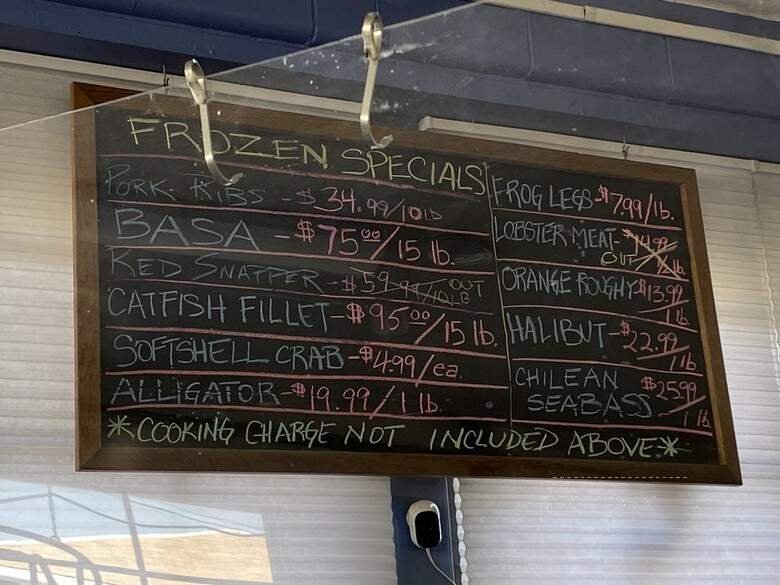 FROZEN SPECIALS
PORK RIBS - $34.99/10 lb
BASA - $7500/15 lb.
RED SNAPPER - $59.99/10LB OUT
CATFISH FILLET - $95.00/15 lb.
SOFTSHELL CRAB - $4.99/ea.
ALLIGATOR - $19.99/1 lb.
FROG LEGS - $7.99/lb.
LOBSTER MEAT - OUT
ORANGE ROUGHY - $13.99/1 lb
HALIBUT - $22.99/1 lb.
CHILEAN
SEABASS $25.99/1 lb
*COOKING CHARGE NOT INCLUDED ABOVE*